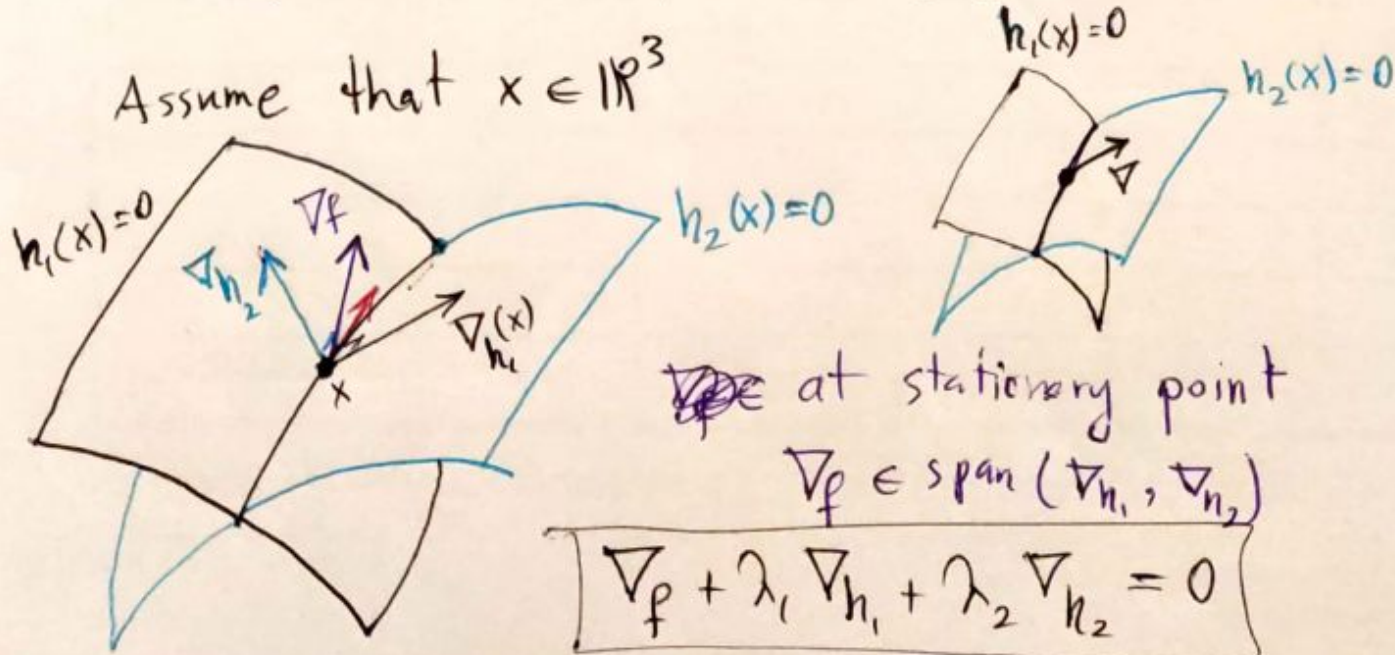 Assume that x ∈ ℝ³
h₁(x)=0
h₂(x)=0
h₁(x)=0
∇f
h₂(x)=0
∇h₂
∇
∇h₁(x)
x
at stationary point
∇f ∈ span (∇h₁, ∇h₂)
∇f + λ₁ ∇h₁ + λ₂ ∇h₂ = 0